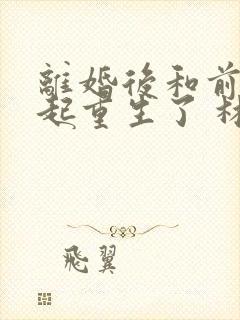 離婚後和前
起重生了
飛翼